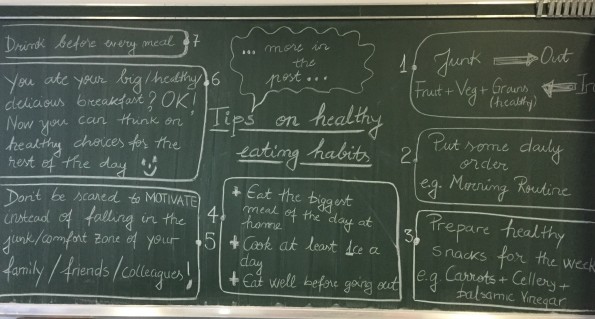 ... more in
the
post ...
Tips on healthy
eating habits
1 Junk → Out
Fruit + Veg + Grains ←
(healthy)
2 Put some daily
order
e.g. Morning Routine
3. Prepare healthy
snacks for the week
e.g Carrots + Cellery +
balsamic Vinegar
4 + Eat the biggest
meal of the day at
home
+ Cook at least 1ce a
day
+ Eat well before going out
5 Don't be scared to MOTIVATE
instead of falling in the
junk/comfort zone of your
family / friends / colleagues!
6 You ate your big/healthy/
delicious breakfast? OK!
Now you can think on
healthy choices for the
rest of the day
7 Drink before every meal